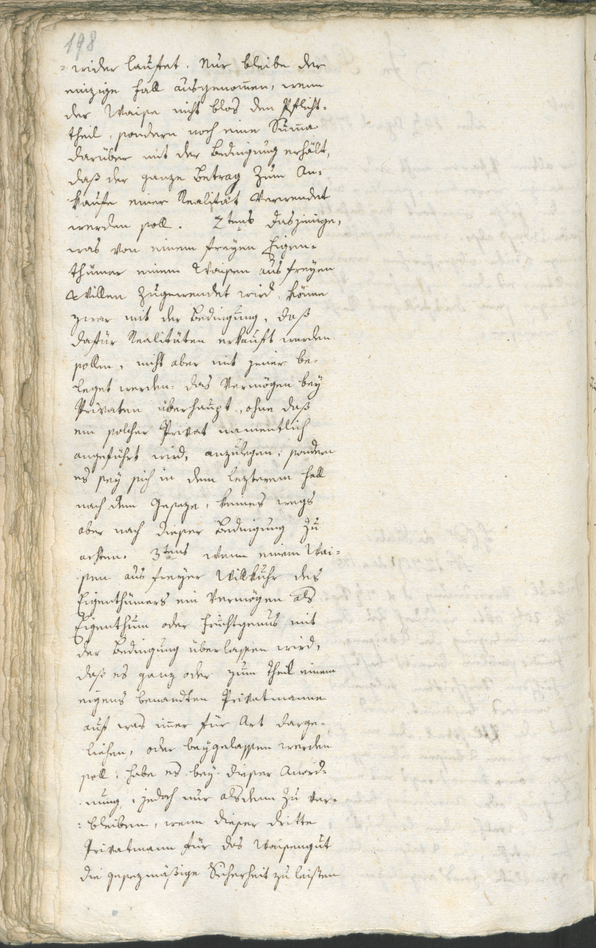 198
=wider lautet. Nur bleibe der
einzige Fall ausgenommen, wenn
der Waise nicht blos den Pflicht=
theil, sondern noch eine Summa
darüber mit der Bedingung erhält,
daß der ganze Betrag zum An=
kaufe einer Realität verwendet
werden soll. 2tens dasjenige,
was von einem freyen Eigen=
thümer einem Waisen aus freyen
Willen zugewendet wird, könne
zwar mit der Bedingung, daß
dafür Realitäten erkauft werden
sollen, nicht aber mit jener be=
leget werden, das Vermögen bey
Privaten überhaupt, ohne daß
ein solcher Privat namentlich
angeführt wird, anzulegen; sondern
es sey sich in dem lezterem Fall
nach dem Geseze, keines wegs
aber nach dieser Bedingung zu
achten. 3tens wenn einem Wai=
sen aus freyer Willkuhr des
Eigenthümers ein Vermögen als
Eigenthum oder Fruchtgenus mit
der Bedingung überlassen wird,
daß es ganz oder zum theil einem
eigens benandten Privatmanne
auf was imer für Art darge=
liehen, oder beygelassen werden
soll, habe es bey dieser Anord=
nung, jedoch nur alsdenn zu ver=
=bleiben, wenn dieser dritte
Privatmann für das Waisengut
die gesezmäßige Sicherheit zu leisten